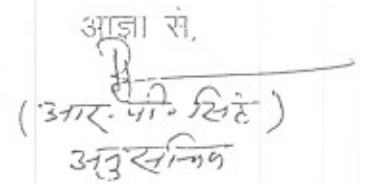 आज्ञा से,
(आर. पी. सिंह)
अनु सचिव